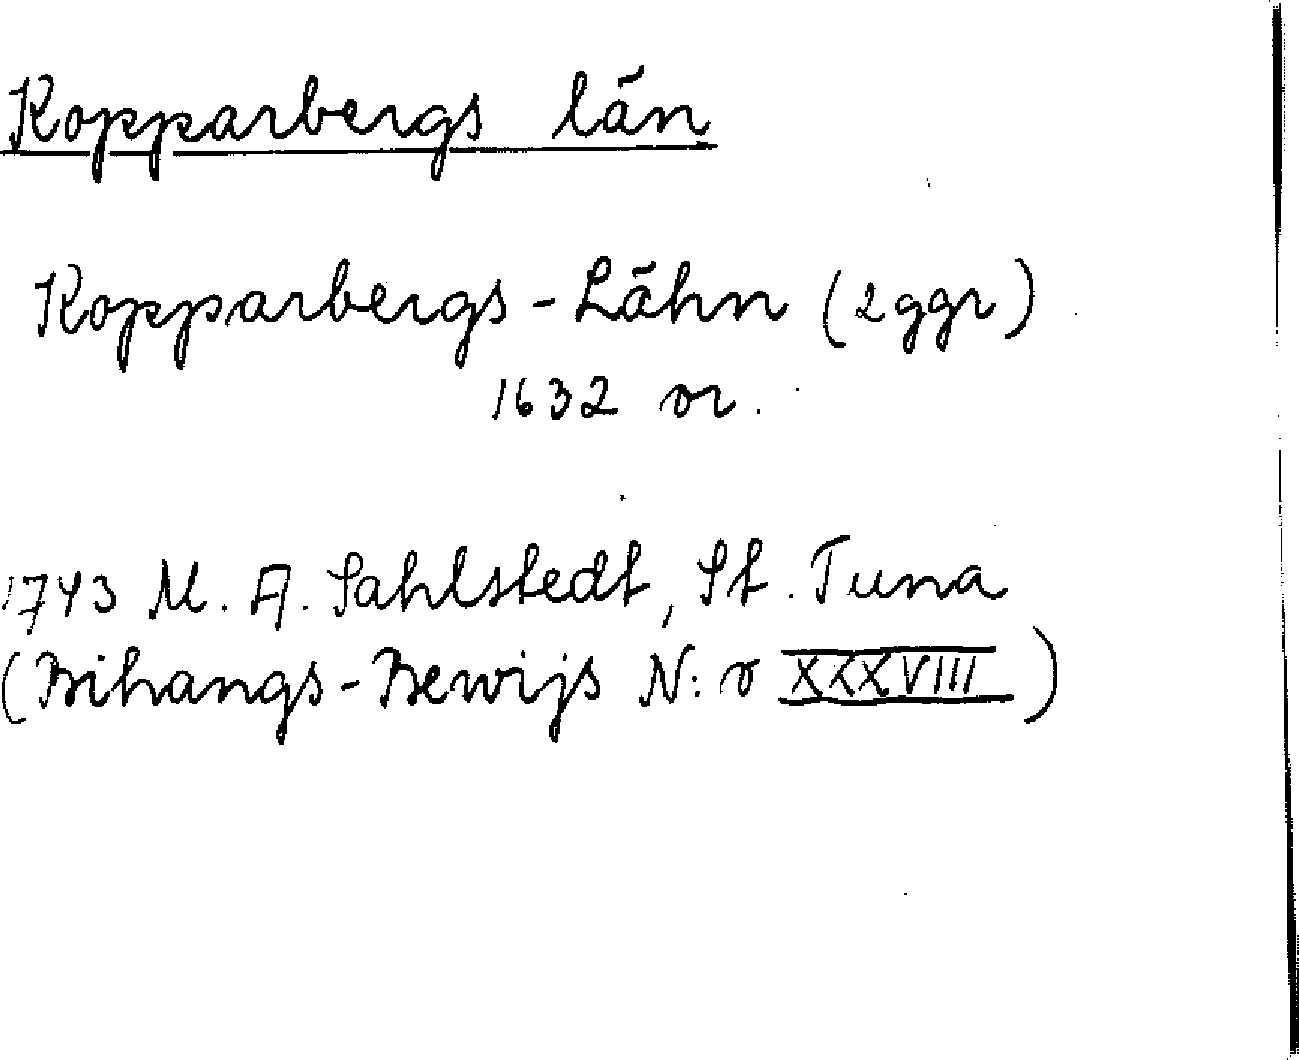 Kopparbergs län
Kopparbergs-Lähn (2ggr)
1632 or.
1743 M. A. Sahlstedt, St. Tuna
(Bihangs-Bewijs N:o XXXVIII)